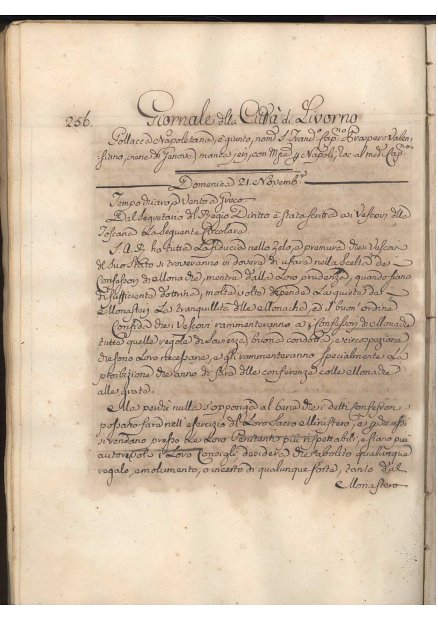 256.
Giornale della Città di Livorno
Pollacca Napoletana, è giunto, nom.ª S. Fran.co Cap.no Prospero Valen-
ziano, viene di Genova, manca jeri, con M.rie p Napoli, rac. al med. Cap.no
Domenica 21. Novemb.e
Tempo chiaro, e Vento a Greco.
Dal Segretario del Regio Diritto è stata scritta ai Vescovi della
Toscana la seguente Circolare.
S. A. R. ha tutta la fiducia nello zelo, e premura che i Vescovi
del Suo Stato si troveranno in dovere di usare nella scelta de
Confessori di Monache, mentre dalla loro prudenza, quando siano
di sufficiente dottrina, molte volte depende la quiete dei
Monasteri, la tranquillità delle Monache, ed il buon ordine.
Confida che i Vescovi rammenteranno ai Confessori di Monache
tutte quelle regole di Saviezza, buona condotta, e circospezione
che sono loro necessarie, e gli rammenteranno specialmente la
proibizione che anno di fare delle conferenze colle Monache
alle grate.
Ma perchè nulla s'opponga al bene che i detti Confessori
possano fare nell'esercizio del Loro Sacro Ministero, e che essi
si rendano presso le Loro Penitenti più rispettabili, e siano più
autorevoli i Loro Consigli, desidera che sia abolito qualunque
regalo, emolumento, o incerto di qualunque sorta, tanto dal
Monastero